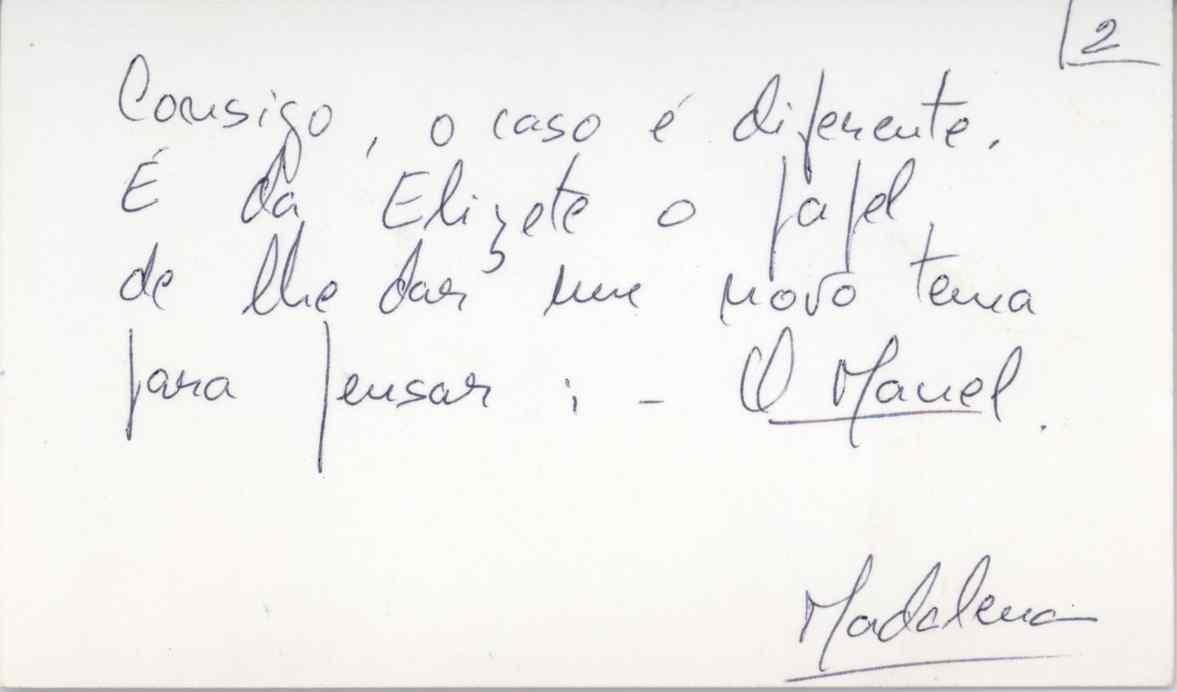 2
Consigo, o caso é diferente.
É da Elizete o papel
de lhe dar um novo tema
para pensar: - O Manel.
Madalena